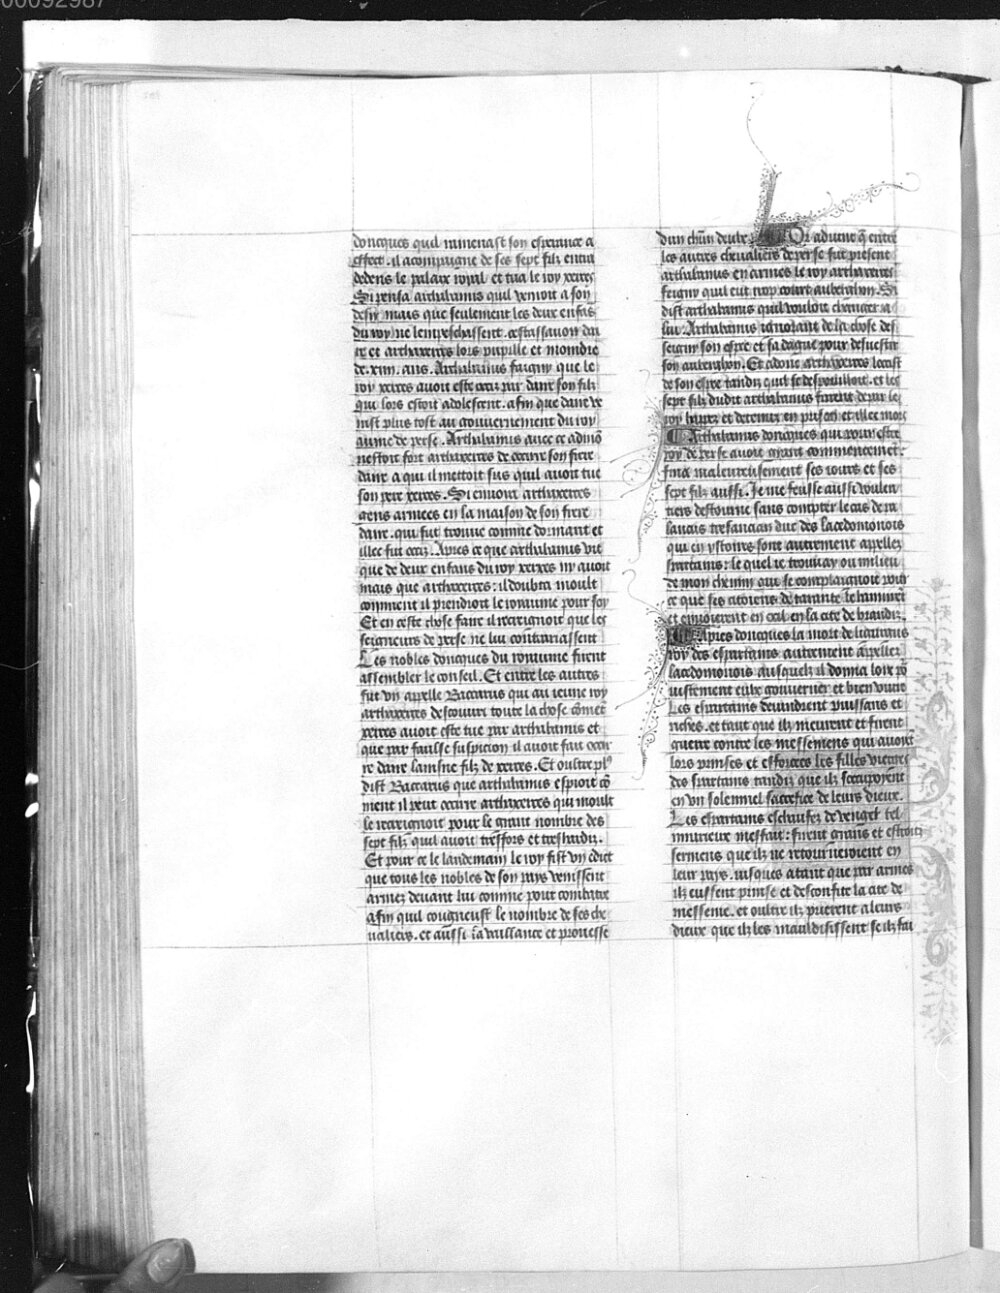 00092987
doncques quil ramenast son esperance a
effect. il acompaigne de ses sept filz entra
dedens le palaix royal et tua le roy xerces
Si pensa arthabanus quil venroit a son
desir mais que seulement les deux enfās
du roy ne lempeschassent. cestassavoir dai
re et arthaxerces lors pupille et moindre
de .xiiii. ans. Arthabanus faigny que le
roy xerces avoit este occiz par daire son filz
qui lors estoit adolescent. afin que daire ve
nist plus tost au gouvernement du roy
aume de perse. Arthabanus avec ce admō
nestoit fort arthaxerces de occire son frere
daire a qui il mettoit sus quil avoit tue
son pere xerces. Si envoia arthaxerces
gens armees en la maison de son frere
daire. qui fut trouve comme dormant et
illec fut occiz. Apres ce que arthabanus vit
que de deux enfans du roy xerxes ny avoit
mais que arthaxerces: il doubta moult
comment il prendroit le royaume pour soy
Et en ceste chose faire il recraignoit que les
seigneurs de perse ne lui contrariassent
Les nobles doncques du royaume furent
assembler le conseil. Et entre les autres
fut un appelle Baccarus qui au jeune roy
arthaxerces descouvri toute la chose cōmēt
xerces avoit este tue par arthabanus et
que par faulse suspicion il avoit fait occi
re daire lainsne filz de xerces. Et oultre plꝰ
dist Baccarus que arthabanus espioit cō
ment il peut occire arthaxerces qui moult
le recraignoit pour le grant nombre des
sept filz quil avoit tresfors et treshardiz.
Et pour ce le landemain le roy fist un edict
que tous les nobles de son pays venissent
armez devant lui comme pour combatre
afin quil congneust le nombre de ses che
valiers. et aussi la vaillance et prouesse
dun chūn deulx. Or advint q̄ entre
les autres chevaliers de perse fut present
arthabanus en armes le roy arthaxerces
feigny quil eut trop court aubergon. Si
dist arthabanus quil vouloit changer a
lui. Arthabanus ignorant de la chose des
seigny son espee et sa dague pour desvestir
son aubergon. Et adonc arthaxerces loccist
de son espee tandiz quil se despoulloit. et les
sept filz dudit arthabanus furent de par le
roy happez et detenuz en prison et illec mors
Arthabanus doncques qui pour estre
roy de perse avoit grant commencement:
fina maleureusement ses jours et ses
sept filz aussi. Je me feusse aussi voulen
tiers destourne sans compter le cas de pa
lantus tresancian duc des lacedomonois
qui en ystoires sont autrement appellez
spartains: le quel ie trouvay ou milieu
de mon chemin que se complaignoit pour
ce que ses citoiens de tarante le bannirēt
et envoierent en exil en la cite de brandiz.
Apres doncques la mort de ligurgus
roy des espartains autrement appellez
lacedomonois ausquelz il donna loix po͛
justement eulx gouverner et bien vivre
Les espartains devindrent puissans et
riches. et tant que ilz meurent et firent
guerre contre les messeniens qui avoiēt
lors prinses et efforcees les filles vierges
des spartains tandiz que ilz soccupoyent
en un solennel sacrefice de leurs dieux.
Les espartains eschaufez de venger tel
injurieux meffait: firent grans et estroiz
sermens que ilz ne retourneroient en
leur pays. jusques atant que par armes
ilz eussent prinse et desconfite la cite de
messenie. et oultre ilz prierent a leurs
dieux que ilz les mauldisissent se ilz fai